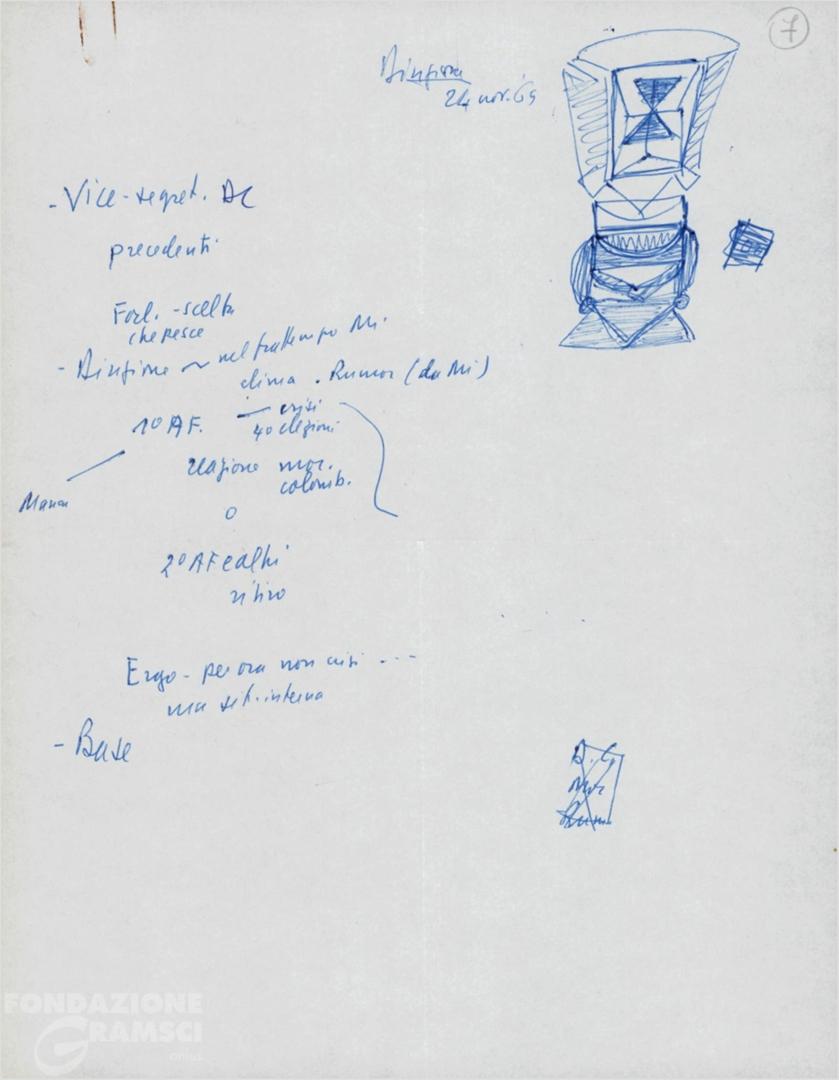 7
Direzione
24 nov. 69
- Vice-segret. DC
precedenti
Forl. - scelta
che pesce
- Direzione ~ nel frattempo Mi.
clima. Rumor (da Mi)
1º AF. — crisi
40 elezioni
relazione mor.
colomb.
o
2º AF e altri
ritiro
Ergo - per ora non crisi ...
ma sit. interna
- Base
D.C.
Mor
Rum
FONDAZIONE
GRAMSCI
onlus